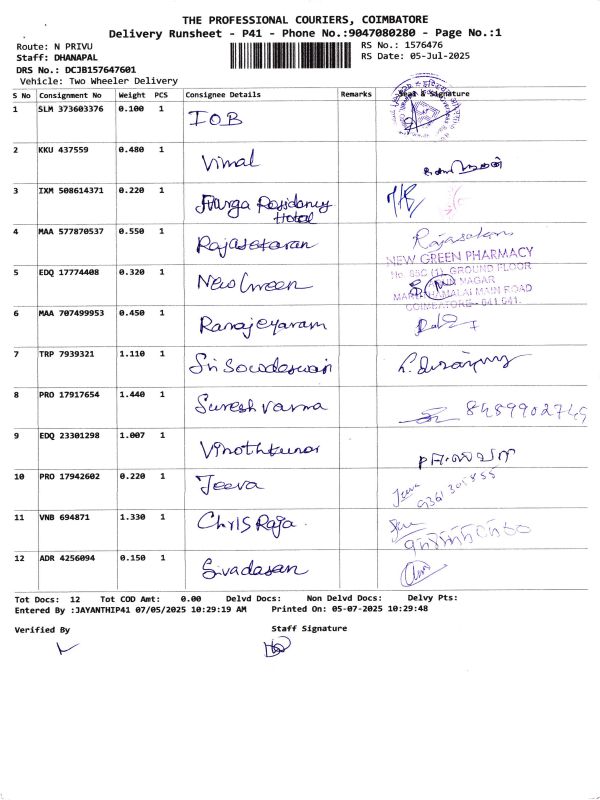 THE PROFESSIONAL COURIERS, COIMBATORE
Delivery Runsheet - P41 - Phone No.:9047080280 - Page No.:1
Route: N PRIVU
RS No.: 1576476
Staff: DHANAPAL
RS Date: 05-Jul-2025
DRS No.: DCJB157647601
Vehicle: Two Wheeler Delivery
S No Consignment No Weight PCS Consignee Details Remarks Seal & Signature
1 SLM 373603376 0.100 1 IOB
2 KKU 437559 0.480 1 Vimal
3 IXM 508614371 0.220 1 Residency Hotel
4 MAA 577870537 0.550 1 Rajasekaran Rajasekaran
NEW GREEN PHARMACY
No. 63C (1), GROUND FLOOR
5 EDQ 17774408 0.320 1 New Green NAGAR
MAIN ROAD
COIMBATORE - 641 041.
6 MAA 707499953 0.450 1 Ramajeyaram
7 TRP 7939321 1.110 1 Sri Sowdeswari
8 PRO 17917654 1.440 1 Suresh Varma 8489902749
9 EDQ 23301298 1.007 1 Vinothkumar
10 PRO 17942602 0.220 1 Jeeva Jeeva
9361301855
11 VNB 694871 1.330 1 Chris Raja
12 ADR 4256094 0.150 1 Sivadasan
Tot Docs: 12 Tot COD Amt: 0.00 Delvd Docs: Non Delvd Docs: Delvy Pts:
Entered By :JAYANTHIP41 07/05/2025 10:29:19 AM Printed On: 05-07-2025 10:29:48
Verified By Staff Signature